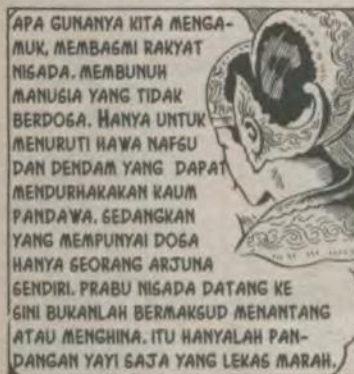 APA GUNANYA KITA MENGA-
MUK, MEMBASMI RAKYAT
NISADA. MEMBUNUH
MANUSIA YANG TIDAK
BERDOSA. HANYA UNTUK
MENURUTI HAWA NAFSU
DAN DENDAM YANG DAPAT
MENDURHAKAKAN KAUM
PANDAWA. SEDANGKAN
YANG MEMPUNYAI DOSA
HANYA SEORANG ARJUNA
SENDIRI. PRABU NISADA DATANG KE
SINI BUKANLAH BERMAKSUD MENANTANG
ATAU MENGHINA. ITU HANYALAH PAN-
DANGAN YAYI SAJA YANG LEKAS MARAH.